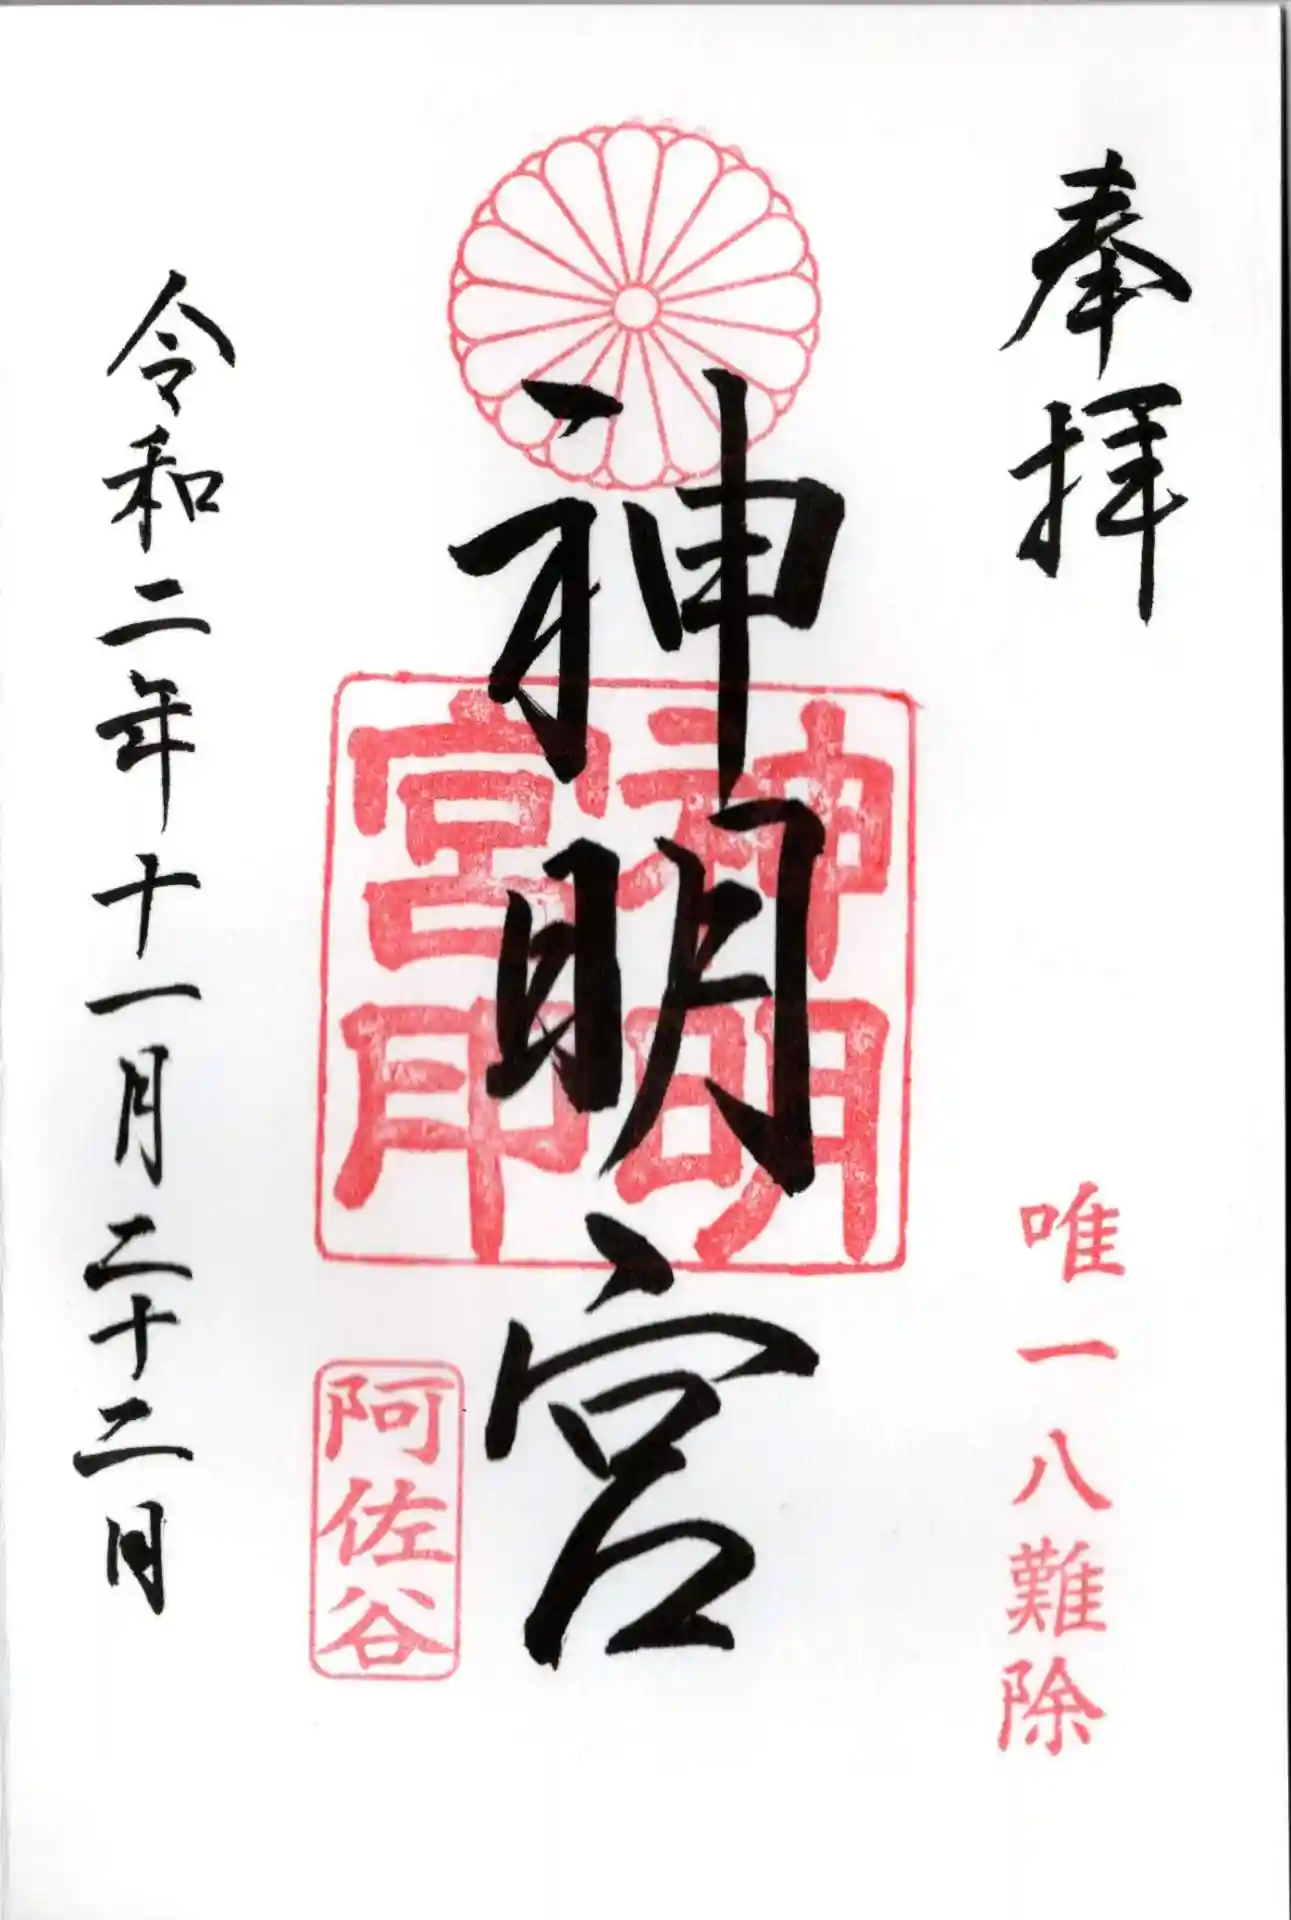 奉拝
唯一八難除
神明宮
神明
宮印
阿佐谷
令和二年十一月二十二日